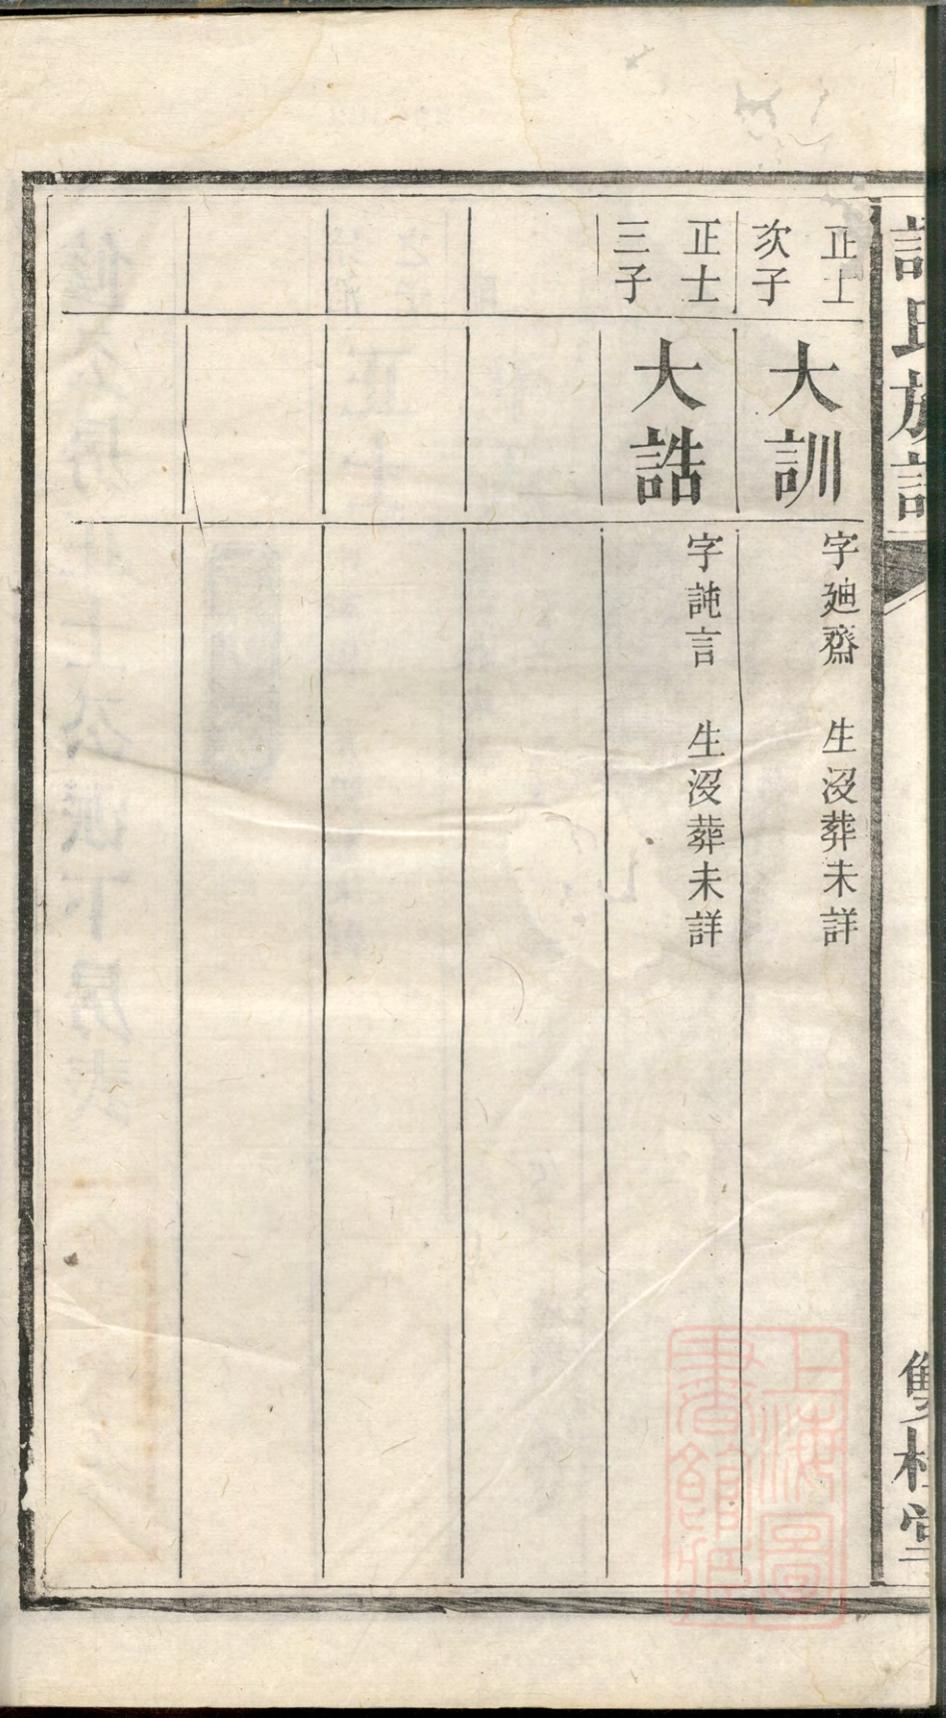 氏族譜
雙桂堂
正士
次子
大訓
字廸齋 生沒葬未詳
正士
三子
大誥
字訰言 生沒葬未詳
上海圖
書館藏